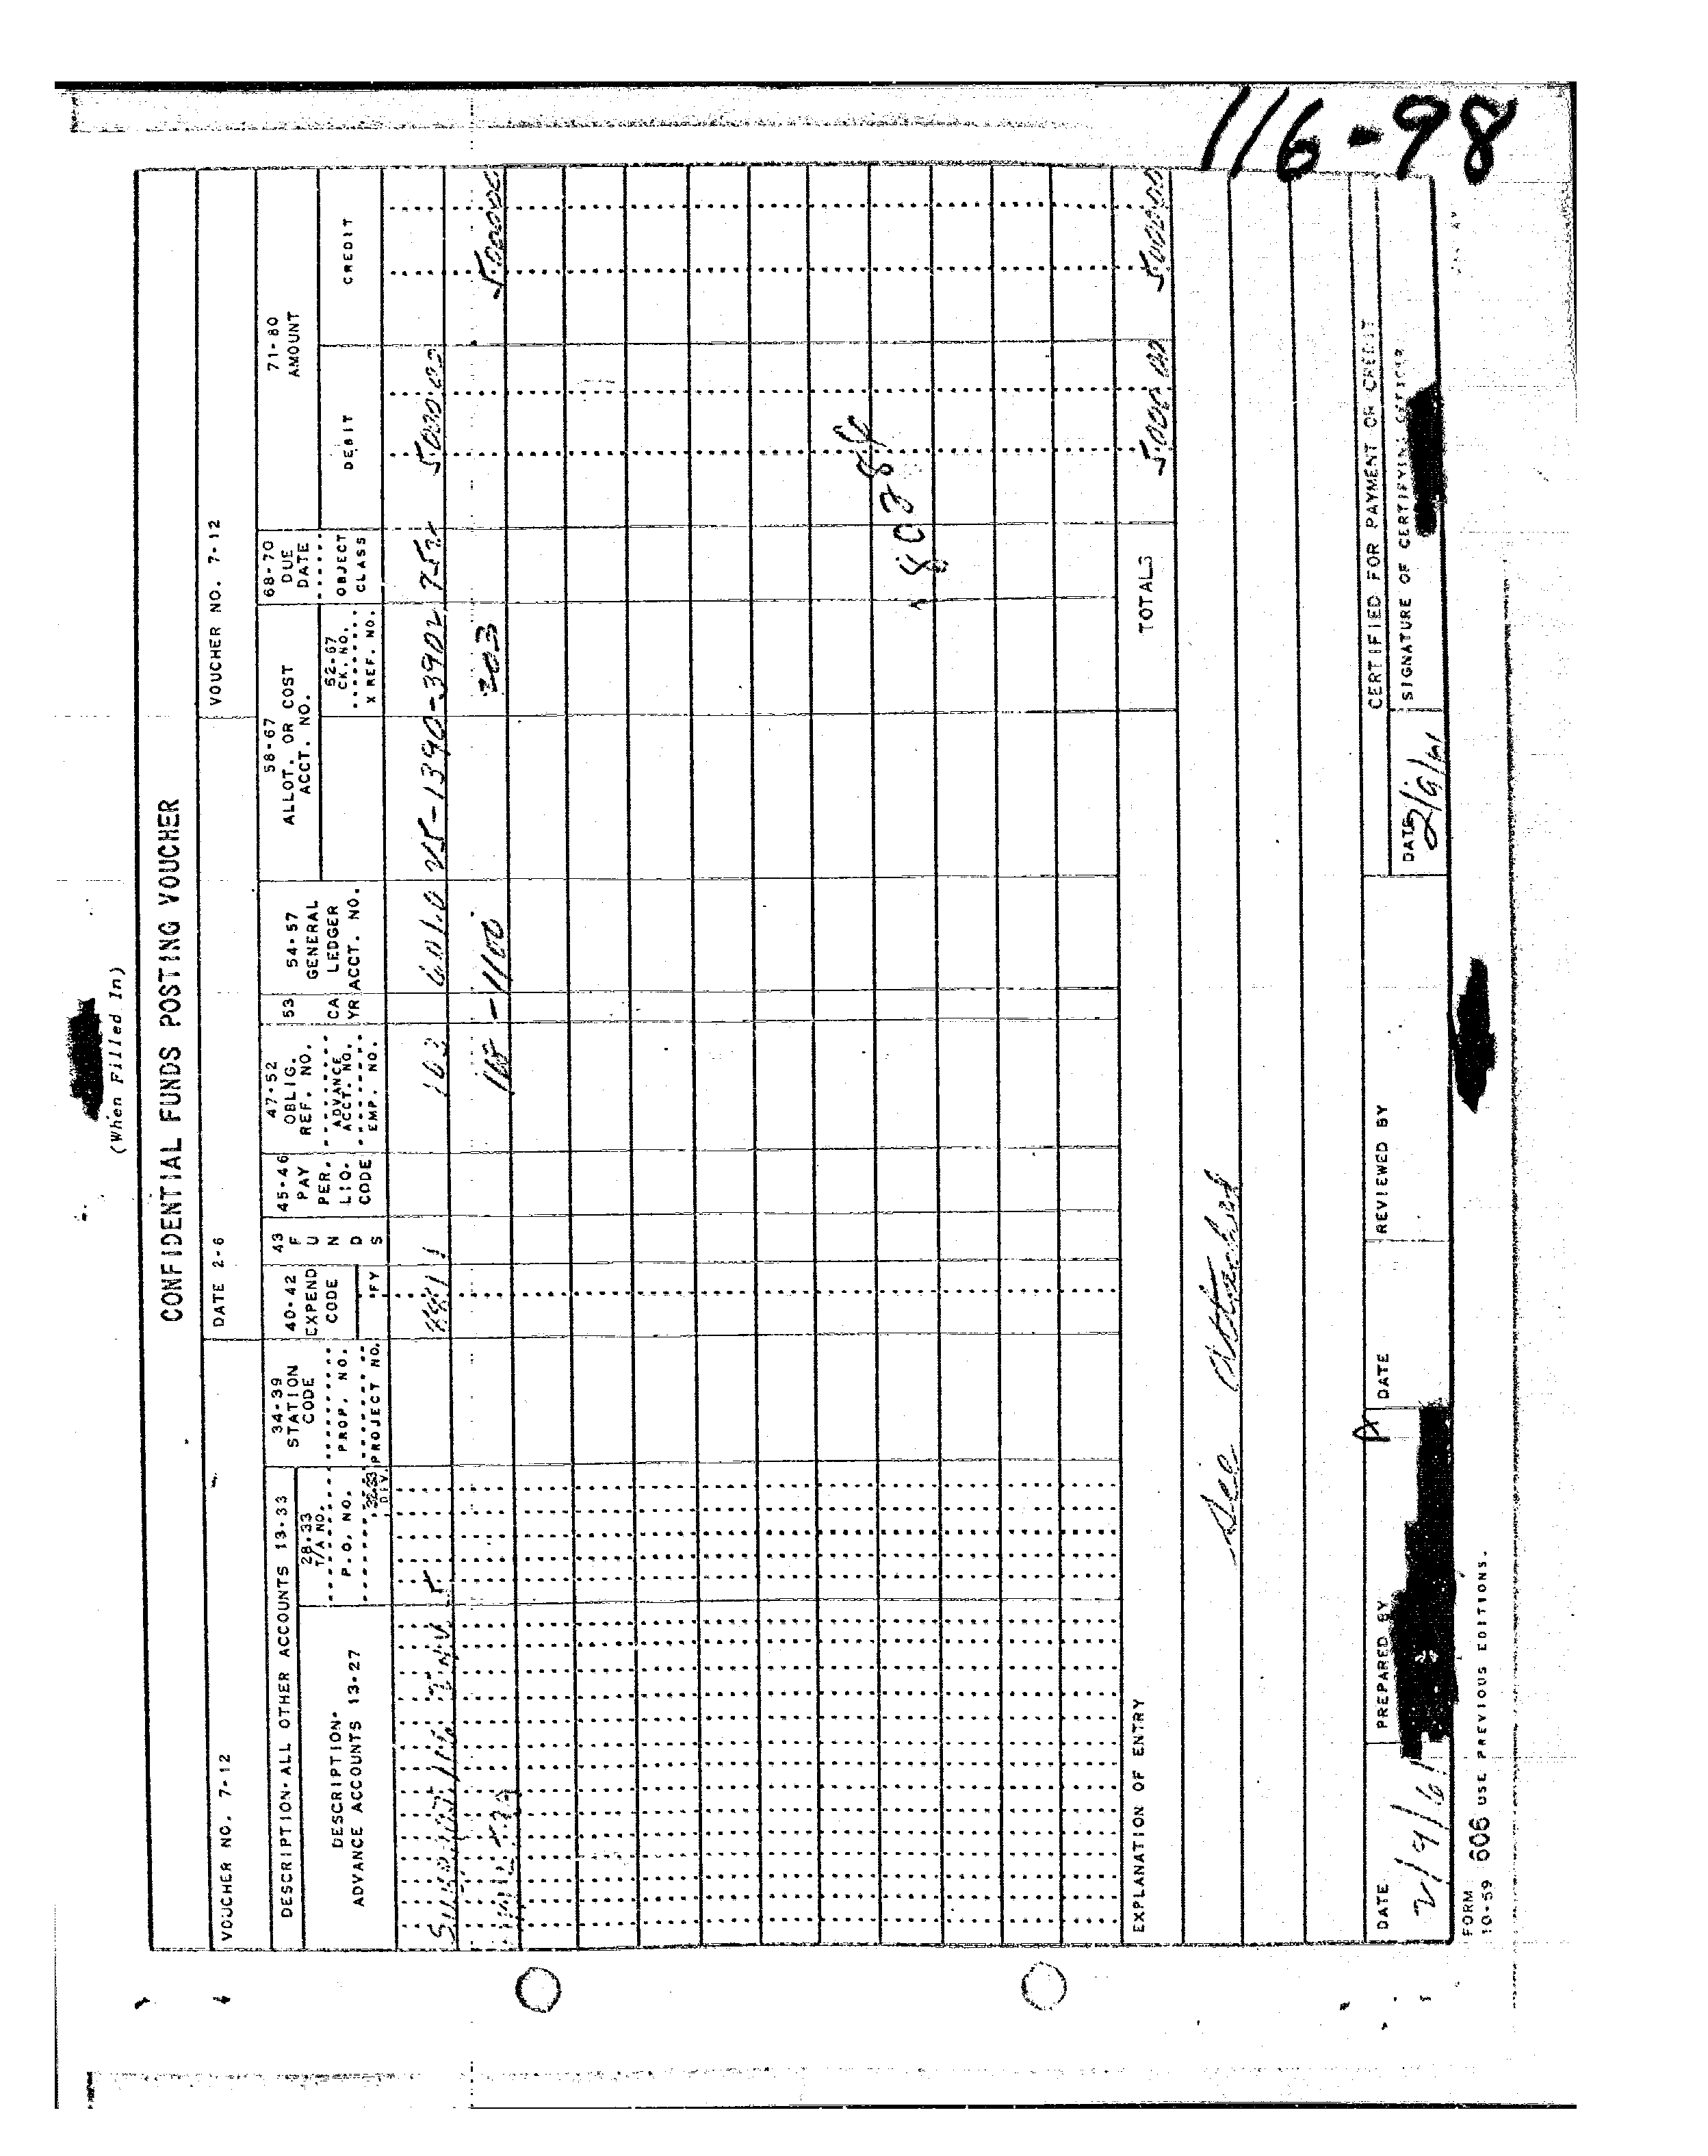 116-98
(When Filled In)
CONFIDENTIAL FUNDS POSTING VOUCHER
VOUCHER NO. 7-12 DATE 2-6 VOUCHER NO. 7-12
DESCRIPTION-ALL OTHER ACCOUNTS 13-33
DESCRIPTION-
ADVANCE ACCOUNTS 13-27
28-33
T/A NO.
P.O. NO.
DIV
34-39
STATION
CODE
PROP. NO.
PROJECT NO.
40-42
EXPEND
CODE
FY
43
F
U
N
D
S
45-46
PAY
PER.
LIQ.
CODE
47-52
OBLIG.
REF. NO.
ADVANCE
ACCT. NO.
EMP. NO.
53
CA
YR
54-57
GENERAL
LEDGER
ACCT. NO.
58-67
ALLOT. OR COST
ACCT. NO.
52-67
CK. NO.
X REF. NO.
68-70
DUE
DATE
OBJECT
CLASS
71-80
AMOUNT
DEBIT
CREDIT
163 601.0 25-1390-3902 5000.00
-1100 203 5000.00
80284
TOTALS 5000.00 5000.00
EXPLANATION OF ENTRY
See attached
DATE PREPARED BY DATE REVIEWED BY CERTIFIED FOR PAYMENT OR CREDIT
DATE SIGNATURE OF CERTIFYING OFFICER
2/9/61 2/9/61
FORM
10-59 606 USE PREVIOUS EDITIONS.